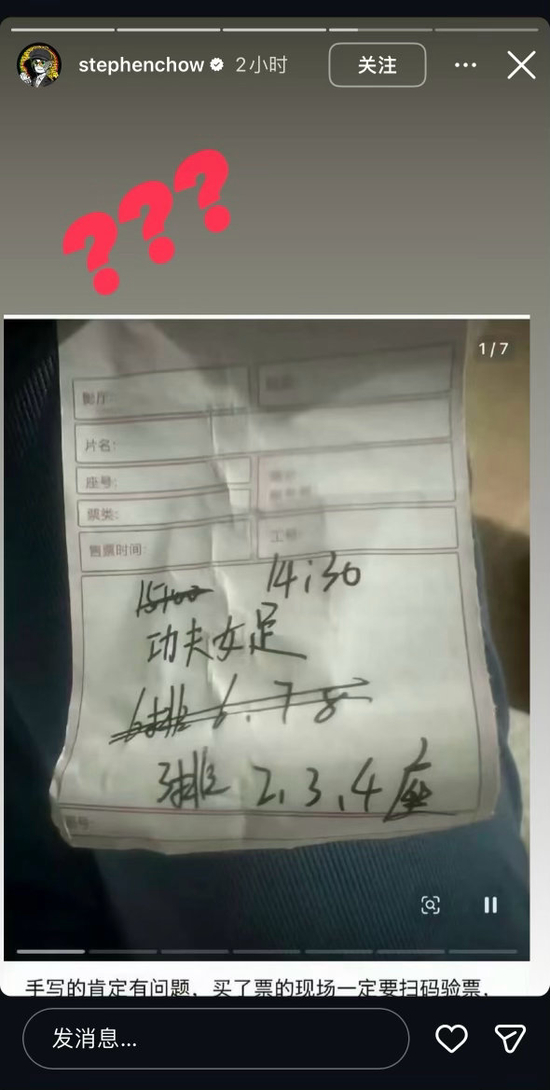 stephenchow 2小时 关注
???
1/7
影厅:
片名:
座号:
票类:
售票时间: 工号:
15:00 14:30
功夫女足
6排 6.7 8
3排 2.3.4座
手写的肯定有问题，买了票的现场一定要扫码验票，
发消息...